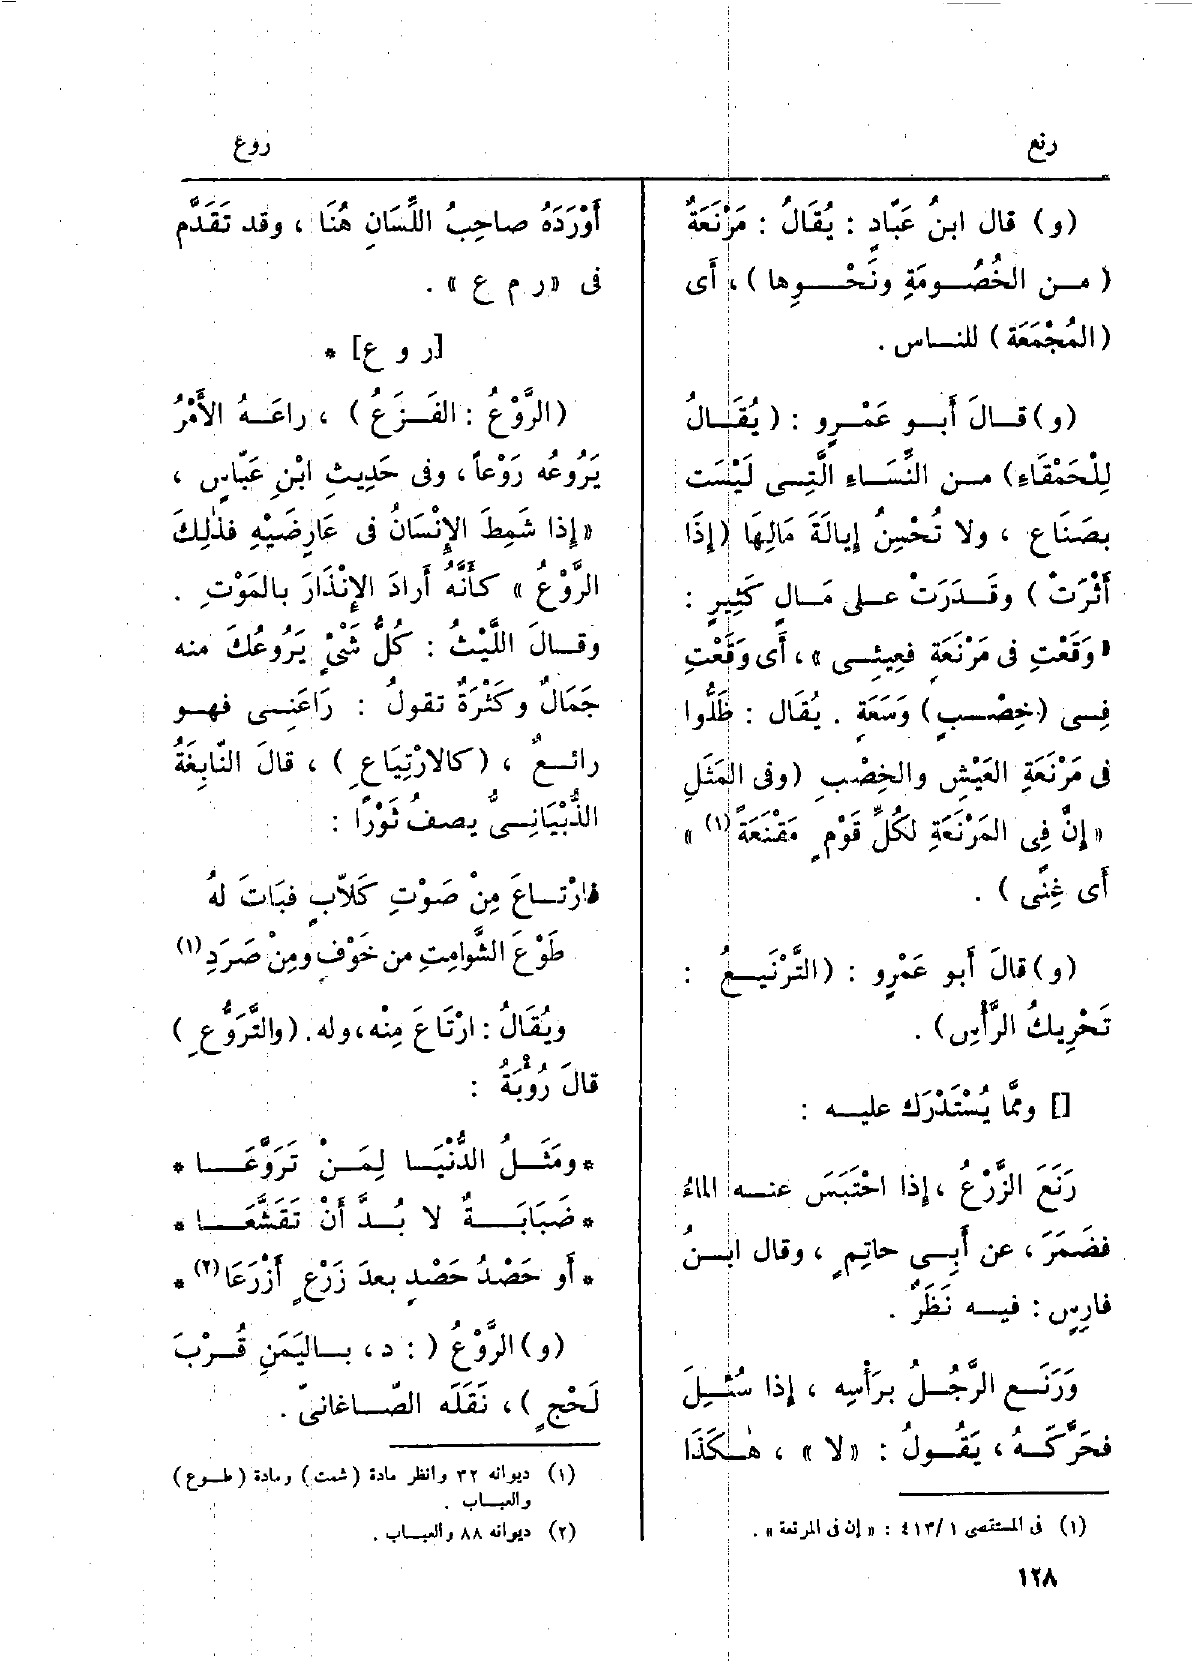 رنع
روع
(و) قال ابنُ عَبّادٍ : يُقَالُ : مَرْنَعَةٌ
( مـن الخُصُـومَةِ ونَحْـوِها ) ، أَى
(المُجْمَعَة ) للنـاس .
(و) قـالَ أَبـو عَمْـرٍو : ( يُقَـالُ
لِلْحَمْقَاءِ) مـن النِّسَـاءِ الَّتِـى لَيْسَت
بِصَنَاع ، ولا تُحْسِنُ إِيالَةَ مَالِهَا (إِذَا
أَثْرَتْ ) وقَـدَرَتْ علـى مَـالٍ كَثِيرٍ :
« وَقَعْتِ فى مَرْنَعَةٍ فَعِيثِـى » ، أَى وَقَعْتِ
فِـى (خِصْـبٍ) وَسَعَةٍ . يُقَال : ظَلُّوا
فى مَرْنَعَةِ العَيْشِ والخِصْبِ (وفى المَثَلِ
« إِنَّ فِى المَرْنَعَةِ لكُلِّ قَوْمٍ مَقْنَعَةً (١) »
أَى غِنًى ) .
(و) قالَ أَبو عَمْرٍو : (التَّرْنَيـعُ :
تَحْرِيكُ الرَّأْسِ) .
[] وممَّا يُسْتَدْرَك عليـه :
رَنَعَ الزَّرْعُ ، إِذا احْتَبَسَ عنـه الماءُ
فضَمَرَ ، عن أَبِـى حاتِمٍ ، وقال ابـنُ
فارِسٍ : فيـه نَظَرٌ .
وَرَنَـع الرَّجُـلُ برَأْسِه ، إِذا سُئِـلَ
فحَرَّكَـهُ ، يَقُـولُ : «لا» ، هٰـكَذَا
(١) فى المستقصى ٤١٣/١ : « إن فى المرنعة » .
أَوْرَدَهُ صاحِبُ اللِّسَانِ هُنَا ، وقد تَقَدَّم
فى «ر م ع » .
[ر و ع] *
(الرَّوْعُ : الفَـزَعُ ) ، راعَـهُ الأَمْرُ
يَرُوعُه رَوْعاً ، وفى حَدِيثِ ابْنِ عَبّاسٍ ،
« إِذا شَمِطَ الإِنْسَانُ فى عَارِضَيْهِ فذٰلِكَ
الرَّوْعُ » كأَنَّهُ أَرادَ الإِنْذَارَ بالمَوْتِ .
وقـالَ اللَّيْثُ : كُلُّ شَىْءٍ يَرُوعُكَ منه
جَمَالٌ وكَثْرَةٌ تقولُ : رَاعَنِـى فهـو
رائـعٌ ، (كالارْتِيَاعِ ) ، قالَ النّابِغَةُ
الذُّبْيَانِـىُّ يصفُ ثَوْرًا :
فارْتـاعَ مِنْ صَوْتِ كَلاّبٍ فبَاتَ لهُ
طَوْعَ الشَّوامِتِ من خَوْفٍ ومِنْ صَرَدِ (١)
ويُقَالُ : ارْتَاعَ مِنْه، وله . (والتَّرَوُّعِ )
قالَ رُؤْبَةُ :
* ومَثَـلُ الدُّنْيَـا لِمَـنْ تَرَوَّعَـا *
* ضَبَابَـةٌ لا بُـدَّ أَنْ تَقَشَّعَـا *
* أَو حَصْدُ حَصْدٍ بعدَ زَرْعٍ أَزْرَعَا (٢) *
(و) الرَّوْعُ ( : د ، بـاليَمَنِ قُـرْبَ
لَحْجٍ ) ، نَقَلَه الصّـاغانىّ .
(١) ديوانه ٣٢ وانظر مادة (شمت) ومادة (طـوع)
والعبـاب .
(٢) ديوانه ٨٨ والعبـاب .
١٢٨